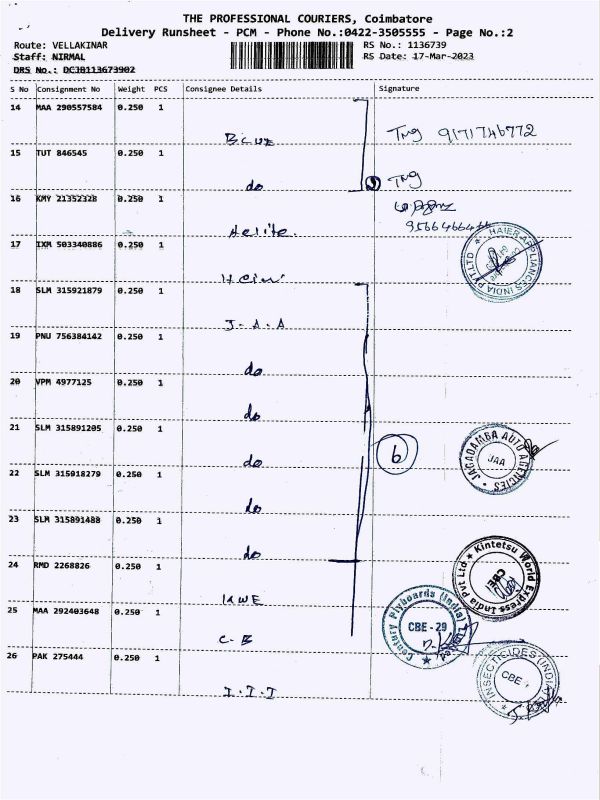 THE PROFESSIONAL COURIERS, Coimbatore
Delivery Runsheet - PCM - Phone No.:0422-3505555 - Page No.:2
Route: VELLAKINAR RS No.: 1136739
Staff: NIRMAL RS Date: 17-Mar-2023
DRS No.: DCJB113673902
S No Consignment No Weight PCS Consignee Details Signature
14 MAA 290557584 0.250 1
BLUE Tmg 9171746772
15 TUT 846545 0.250 1
do Tmg
16 KMY 21352328 0.250 1
9566466444
17 IXM 503340886 0.250 1
HAIER APPLIANCES INDIA PVT LTD
18 SLM 315921879 0.250 1
J-A-A
19 PNU 756384142 0.250 1
do
20 VPM 4977125 0.250 1
do
21 SLM 315891205 0.250 1
do
JAGADAMBA AUTO AGENCIES
JAA
22 SLM 315918279 0.250 1
do
23 SLM 315891488 0.250 1
do
24 RMD 2268826 0.250 1
KWE
Kintetsu World Express India Pvt Ltd
CBE
25 MAA 292403648 0.250 1
C-B
Century Plyboards (India)
CBE-29
26 PAK 275444 0.250 1
I-I-I
INSECTICIDES (INDIA)
CBE